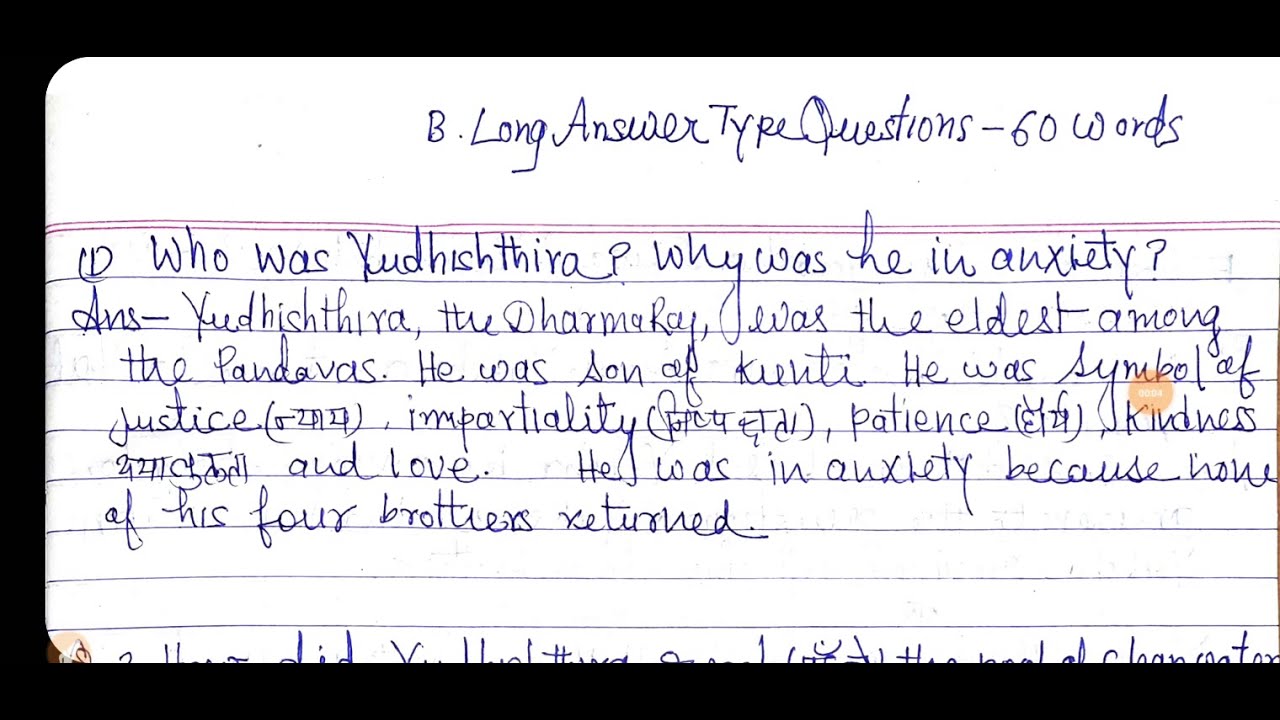 B. Long Answer Type Questions - 60 words
① Who was Yudhishthira? Why was he in anxiety?
Ans- Yudhishthira, the DharmaRaj, was the eldest among
the Pandavas. He was son of Kunti. He was symbol of
justice (न्याय), impartiality (निष्पक्षता), patience (धैर्य), kindness
and love. He was in anxiety because none
of his four brothers returned.
2. How did Yudhishthira the pool of clean water
00:04